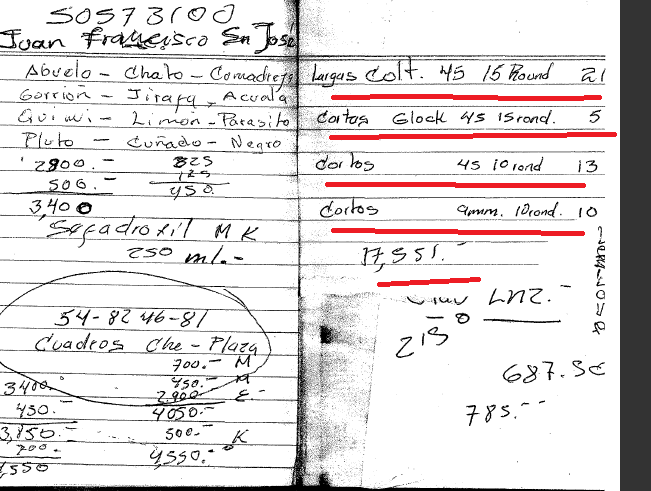 50573100
Juan Francisco Sn Jose
Abuelo - Chato - Comadreja
Gorrión - Jirafa, Acuala
Quimi - Limón - Parasito
Pluto - Cuñado - Negro
2900.- 325
500.- 125
3,400 450.
MK
250 ml.-
54-82 46-81
Cuadros Che - Plaza
700.- M
3400.- 450.- M
450.- 2,900 E.-
3,850.- 4050.-
700.- 500.- K
4,550 4,550.-
Largas Colt. 45 15 Round 21
Cortos Glock 45 15rond. 5
Cortos 45 10 rond 13
Cortos 9mm. 10rond. 10
17,551.-
LNZ.-
- 0
215
687.50
785.--